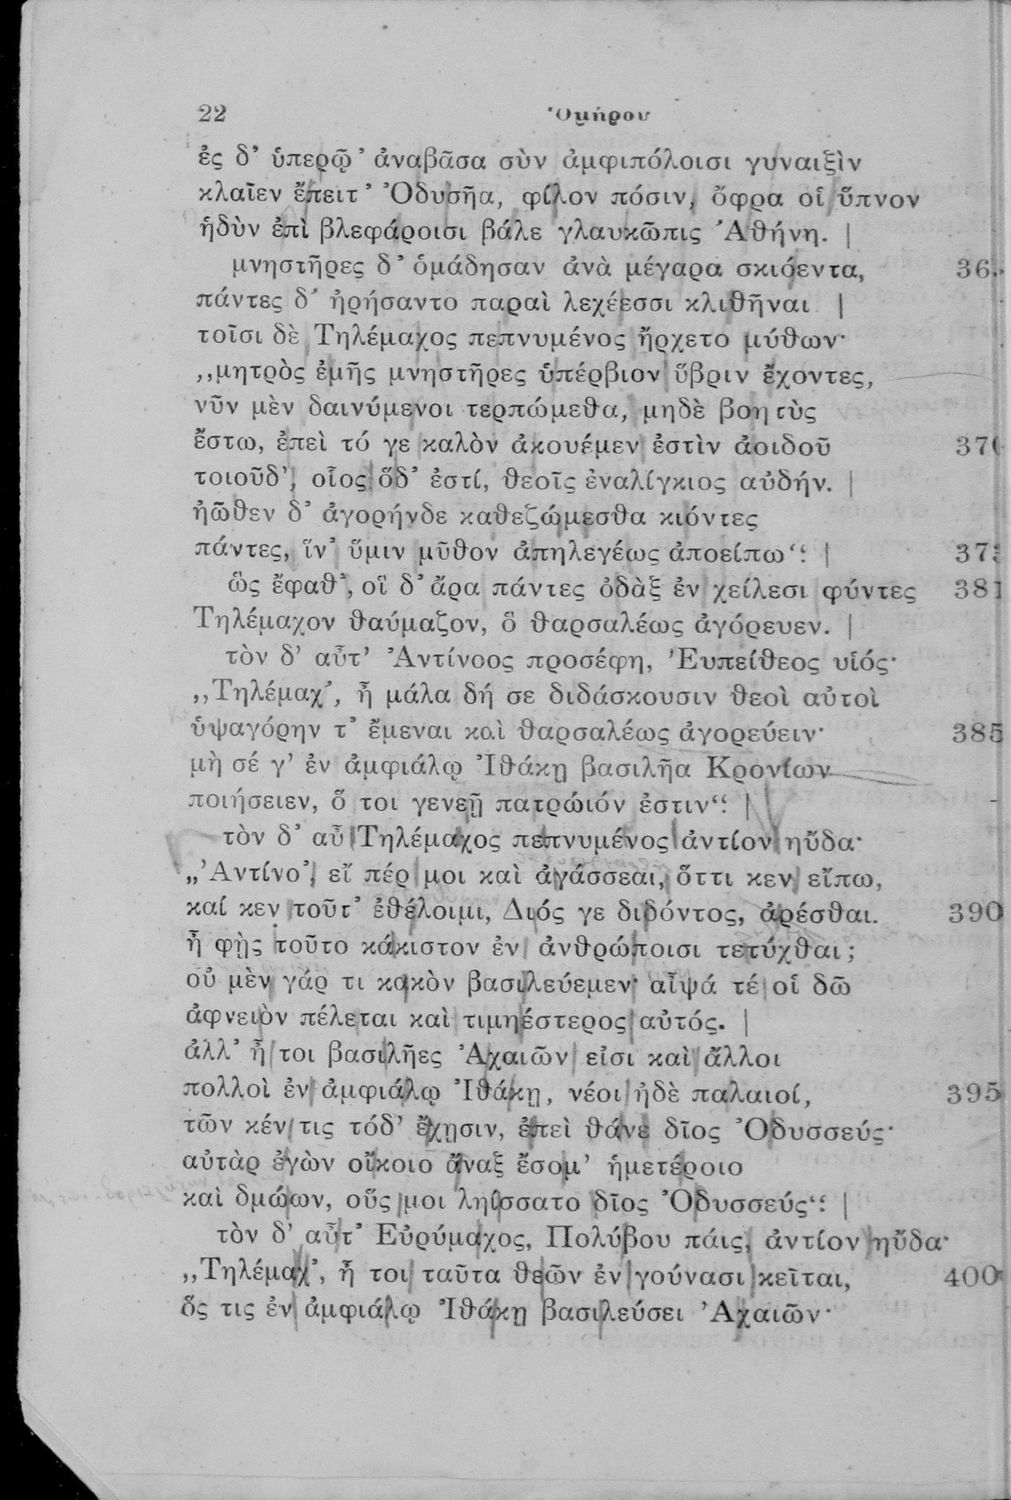 22 Ὁμήρου
ἐς δ' ὑπερῷ' ἀναβᾶσα σὺν ἀμφιπόλοισι γυναιξὶν
κλαῖεν ἔπειτ' Ὀδυσῆα, φίλον πόσιν, ὄφρα οἱ ὕπνον
ἡδὺν ἐπὶ βλεφάροισι βάλε γλαυκῶπις Ἀθήνη. |
μνηστῆρες δ' ὁμάδησαν ἀνὰ μέγαρα σκιόεντα, 36
πάντες δ' ἠρήσαντο παραὶ λεχέεσσι κλιθῆναι |
τοῖσι δὲ Τηλέμαχος πεπνυμένος ἤρχετο μύθων·
„μητρὸς ἐμῆς μνηστῆρες ὑπέρβιον ὕβριν ἔχοντες,
νῦν μὲν δαινύμενοι τερπώμεθα, μηδὲ βοητὺς
ἔστω, ἐπεὶ τό γε καλὸν ἀκουέμεν ἐστὶν ἀοιδοῦ 370
τοιοῦδ', οἷος ὅδ' ἐστί, θεοῖς ἐναλίγκιος αὐδήν. |
ἠῶθεν δ' ἀγορήνδε καθεζώμεσθα κιόντες
πάντες, ἵν' ὕμιν μῦθον ἀπηλεγέως ἀποείπω“: | 373
ὣς ἔφαθ', οἳ δ' ἄρα πάντες ὀδὰξ ἐν χείλεσι φύντες 381
Τηλέμαχον θαύμαζον, ὃ θαρσαλέως ἀγόρευεν. |
τὸν δ' αὖτ' Ἀντίνοος προσέφη, Ἐυπείθεος υἱός·
„Τηλέμαχ', ἦ μάλα δή σε διδάσκουσιν θεοὶ αὐτοὶ
ὑψαγόρην τ' ἔμεναι καὶ θαρσαλέως ἀγορεύειν· 385
μὴ σέ γ' ἐν ἀμφιάλῳ Ἰθάκῃ βασιλῆα Κρονίων
ποιήσειεν, ὅ τοι γενεῇ πατρώιόν ἐστιν“: |
τὸν δ' αὖ Τηλέμαχος πεπνυμένος ἀντίον ηὔδα·
„Ἀντίνο', εἴ πέρ μοι καὶ ἀγάσσεαι, ὅττι κεν εἴπω,
καί κεν τοῦτ' ἐθέλοιμι, Διός γε διδόντος, ἀρέσθαι. 390
ἦ φῂς τοῦτο κάκιστον ἐν ἀνθρώποισι τετύχθαι;
οὐ μὲν γάρ τι κακὸν βασιλεύεμεν· αἶψά τέ οἱ δῶ
ἀφνειὸν πέλεται καὶ τιμηέστερος αὐτός. |
ἀλλ' ἦ τοι βασιλῆες Ἀχαιῶν εἰσι καὶ ἄλλοι
πολλοὶ ἐν ἀμφιάλῳ Ἰθάκῃ, νέοι ἠδὲ παλαιοί, 395
τῶν κέν τις τόδ' ἔχῃσιν, ἐπεὶ θάνε δῖος Ὀδυσσεύς·
αὐτὰρ ἐγὼν οἴκοιο ἄναξ ἔσομ' ἡμετέροιο
καὶ δμώων, οὕς μοι ληίσσατο δῖος Ὀδυσσεύς“: |
τὸν δ' αὖτ' Εὐρύμαχος, Πολύβου πάις, ἀντίον ηὔδα·
„Τηλέμαχ', ἦ τοι ταῦτα θεῶν ἐν γούνασι κεῖται, 400
ὅς τις ἐν ἀμφιάλῳ Ἰθάκῃ βασιλεύσει Ἀχαιῶν·